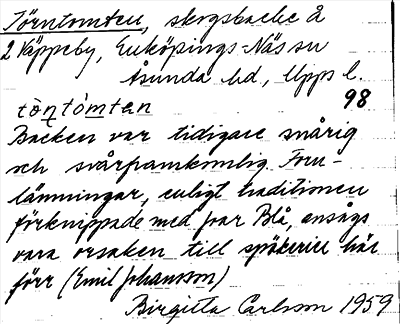 Törntomten, skogsbacke å
2 Väppeby, Enköpings-Näs sn
Åsunda hd, Upps l.
tö̀ntómtan 98
Backen var tidigare snårig
och svårframkomlig. Forn-
lämningar, enligt traditionen
förknippade med Joar Blå, ansågs
vara orsaken till spökerier här
förr (Emil Johansson)
Birgitta Carlsson 1959